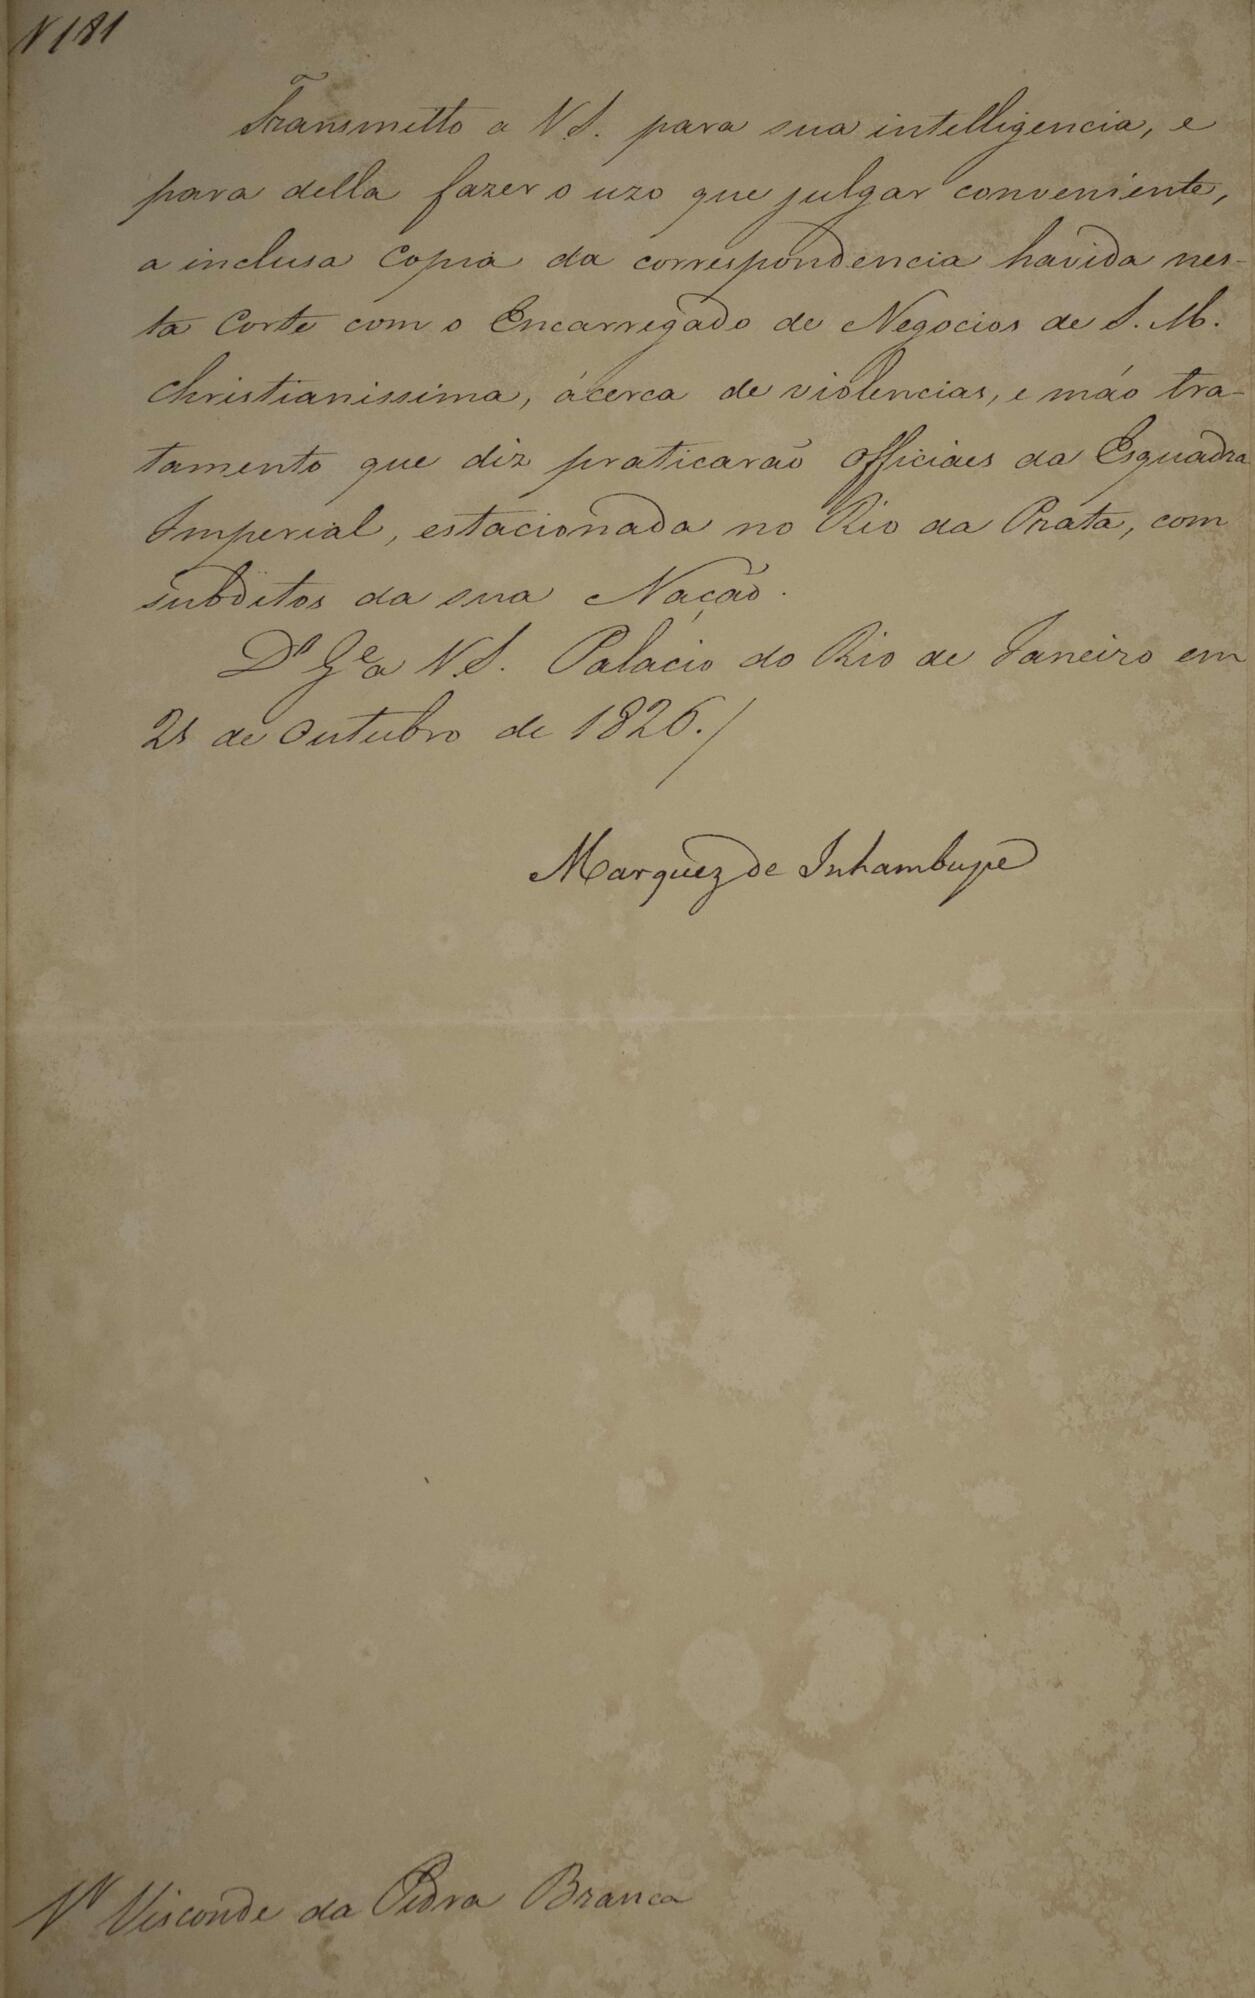 N 181
Transmitto a V S. para sua intelligencia, e
para della fazer o uzo que julgar conveniente,
a inclusa Copia da correspondencia havida nes-
ta Corte com o Encarregado de Negocios de S. M.
Christianissima, ácerca de violencias, e máo tra-
tamento que diz praticaraõ Officiaes da Esquadra
Imperial, estacionada no Rio da Prata, com
subditos da sua Naçaõ.
Ds Ge a V. S. Palacio do Rio de Janeiro em
21 de Outubro de 1826./
Marquez de Inhambupe
Visconde da Pedra Branca